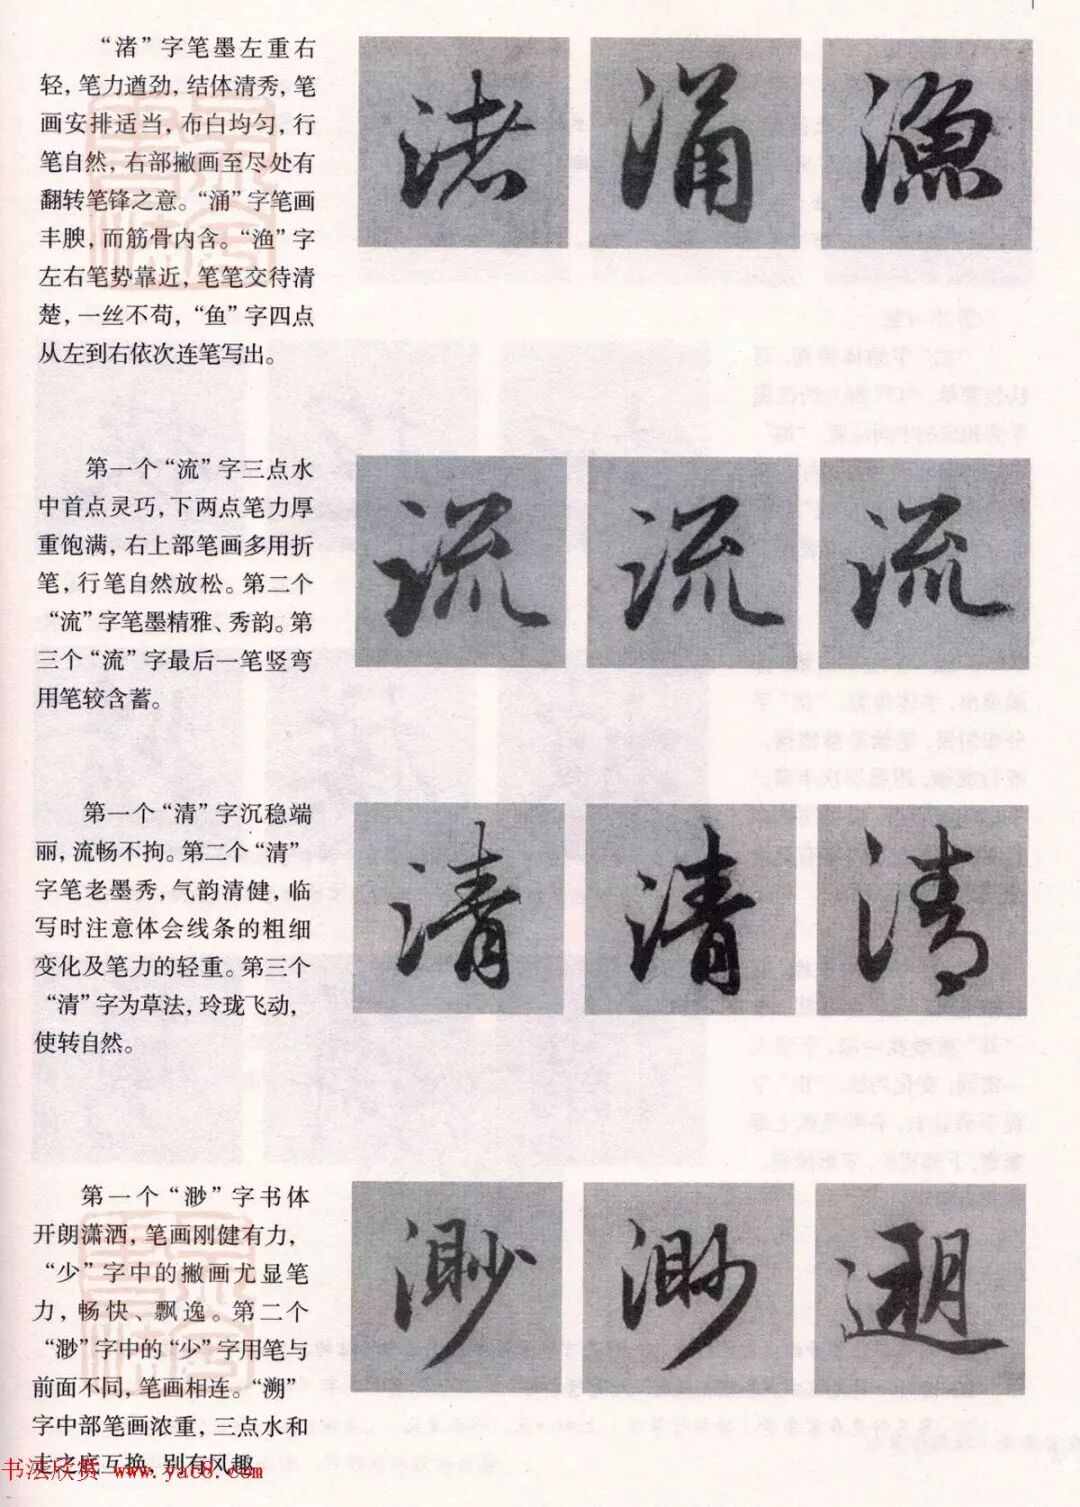 “渚”字笔墨左重右
轻，笔力遒劲，结体清秀，笔
画安排适当，布白均匀，行
笔自然，右部撇画至尽处有
翻转笔锋之意。“涌”字笔画
丰腴，而筋骨内含。“渔”字
左右笔势靠近，笔笔交待清
楚，一丝不苟，“鱼”字四点
从左到右依次连笔写出。
渚 涌 渔
第一个“流”字三点水
中首点灵巧，下两点笔力厚
重饱满，右上部笔画多用折
笔，行笔自然放松。第二个
“流”字笔墨精雅、秀韵。第
三个“流”字最后一笔竖弯
用笔较含蓄。
流 流 流
第一个“清”字沉稳端
丽，流畅不拘。第二个“清”
字笔老墨秀，气韵清健，临
写时注意体会线条的粗细
变化及笔力的轻重。第三个
“清”字为草法，玲珑飞动，
使转自然。
清 清 清
第一个“渺”字书体
开朗潇洒，笔画刚健有力，
“少”字中的撇画尤显笔
力，畅快、飘逸。第二个
“渺”字中的“少”字用笔与
前面不同，笔画相连。“溯”
字中部笔画浓重，三点水和
走之底互换，别有风趣
渺 渺 遡
书法欣赏 www.yac8.com